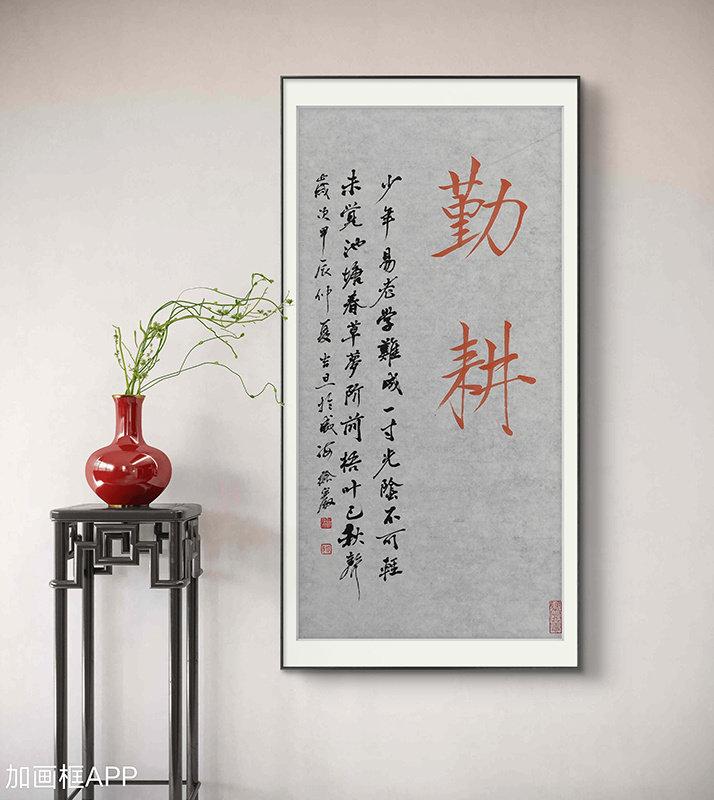 勤耕
少年易老学難成一寸光陰不可輕
未覚池塘春草夢阶前梧叶已秋聲
歲次甲辰仲夏吉旦於威海徐嚴
加画框APP